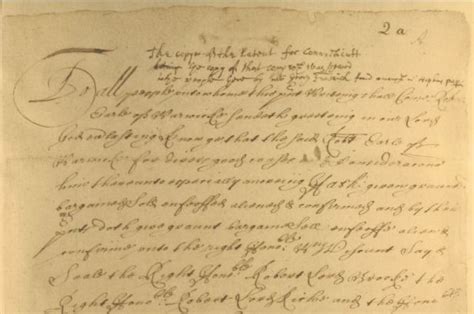 2 a
The copye of the Patent for Connecticutt
being the copy of that
To all people unto whome this p'sent Writeing shall Come Robt
Earle of Warwicke sendeth greeteing in our Lord
God everlasting Know yee that the said Robt Earle of
Warwicke for divers good causes & Considerations
him thereunto especially moveing Hath given graunted
bargained sold enfeoffed aliened & confirmed and by these
p'sents doth give graunt bargaine sell enfeoffe aliene &
confirme unto the right Honoble Wm Vicount Say &
Seale the Right Honoble Robert Lord Brooke the
Right Honoble Robert Lord Riche and the Honoble